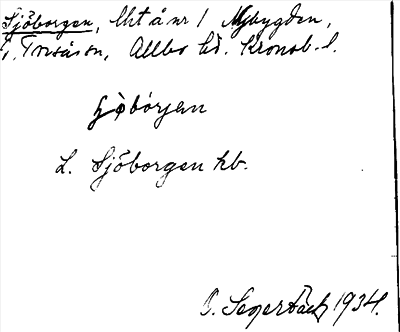 Sjöborgen, lht å nr 1 Nybygden,
i Torsåsen, Allbo hd. Kronob. l.
L. Sjöborgen kb.
B. Segerbäck 1934.